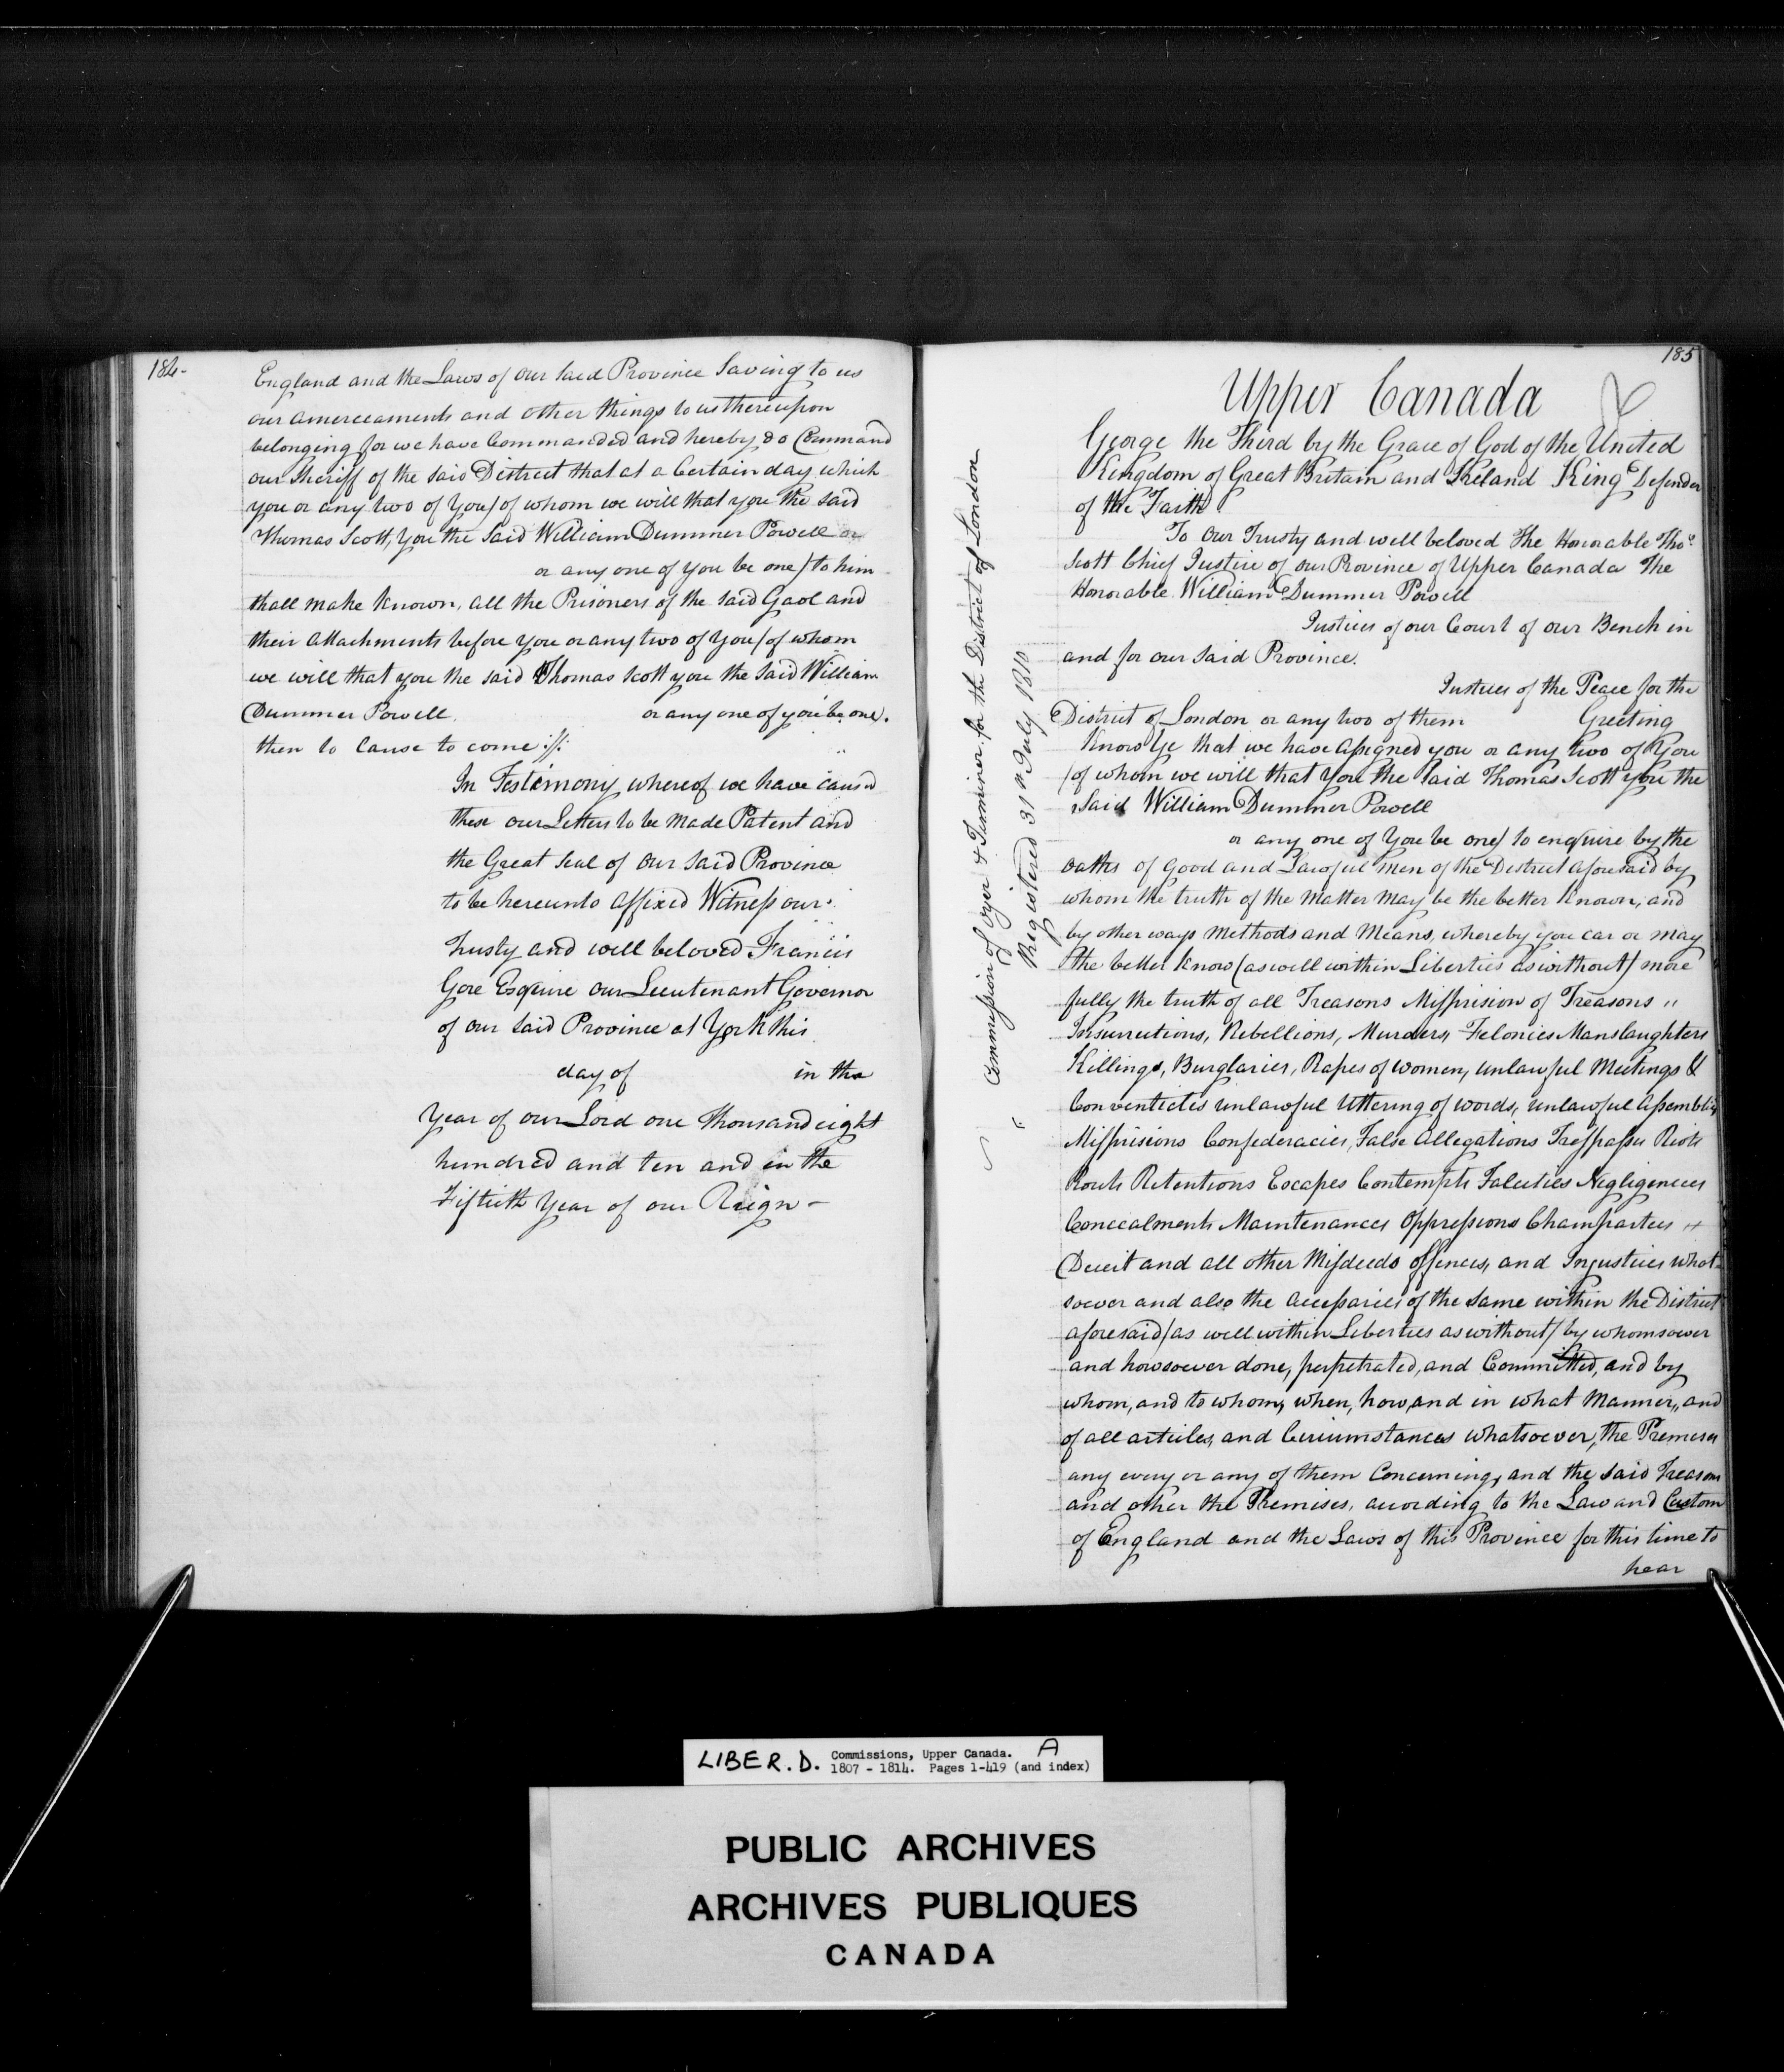 184-
England and the Laws of our said Province Saving to us
our amerceaments and other things to us thereupon
belonging for we have Commanded and hereby do Command
our Sheriff of the said District that at a Certain day which
you or any two of You/of whom we will that you the said
Thomas Scott, You the Said William Dummer Powell or
or any one of you be one/to him
shall make known, all the Prisoners of the said Gaol and
their attachments before you or any two of You/of whom
we will that you the said Thomas Scott you the Said William
Dummer Powell. or any one of you be one).
then to Cause to come
In Testimony whereof we have caused
these our Letters to be Made Patent and
the Great Seal of our said Province
to be hereunto affixed Witness our
Trusty and well beloved Francis
Gore Esquire our Lieutenant Governor
of our said Province at York this
day of in the
Year of our Lord one thousand eight
hundred and ten and in the
Fiftieth Year of our Reign-
185
Upper Canada
George the Third by the Grace of God of the United
Kingdom of Great Britain and Ireland King Defender
of the Faith
To our Trusty and well beloved The Honorable Thos
Scott Chief Justice of our Province of Upper Canada The
Honorable William Dummer Powell
Justices of our Court of our Bench in
and for our said Province.
Justices of the Peace for the
District of London or any two of them Greeting
Know Ye that we have assigned you or any two of You
/of whom we will that You the said Thomas Scott you the
Said William Dummer Powell
or any one of You be one/ to enquire by the
oaths of Good and Lawful men of the District aforesaid by
whom the truth of the Matter May be the better Known, and
by other ways Methods and Means, whereby you can or may
the better Know (as well within Liberties as without) more
fully the truth of all Treasons Misprision of Treasons "
Insurrections, Rebellions, Murders, Felonies Manslaughters
Killings, Burglaries, Rapes of women, unlawful Meetings &
Conventicles unlawful Uttering of words, unlawful assemblies
Misprisions Confederacies, False Allegations Trespasses Riots
Routs Retentions Escapes Contempts Falsities Negligences
Concealments Maintenances Oppressions Champarties
Deceit and all other Misdeeds offences, and Injustices what-
soever and also the accessaries of the same within the District
aforesaid/as well within Liberties as without/ by whomsoever
and howsoever done, perpetrated, and Committed, and by
whom, and to whom, when, how, and in what Manner, and
of all articles, and Circumstances whatsoever, the Premises
any every or any of them Concerning, and the said Treasons
and other the Premises, according to the Law and Custom
of England and the Laws of this Province for this time to
hear
Commission of Oyer & Terminer for the District of London
Registered 31st July 1810
LIBER. D. Commissions, Upper Canada. A
1807 - 1814. Pages 1-419 (and index)
PUBLIC ARCHIVES
ARCHIVES PUBLIQUES
CANADA